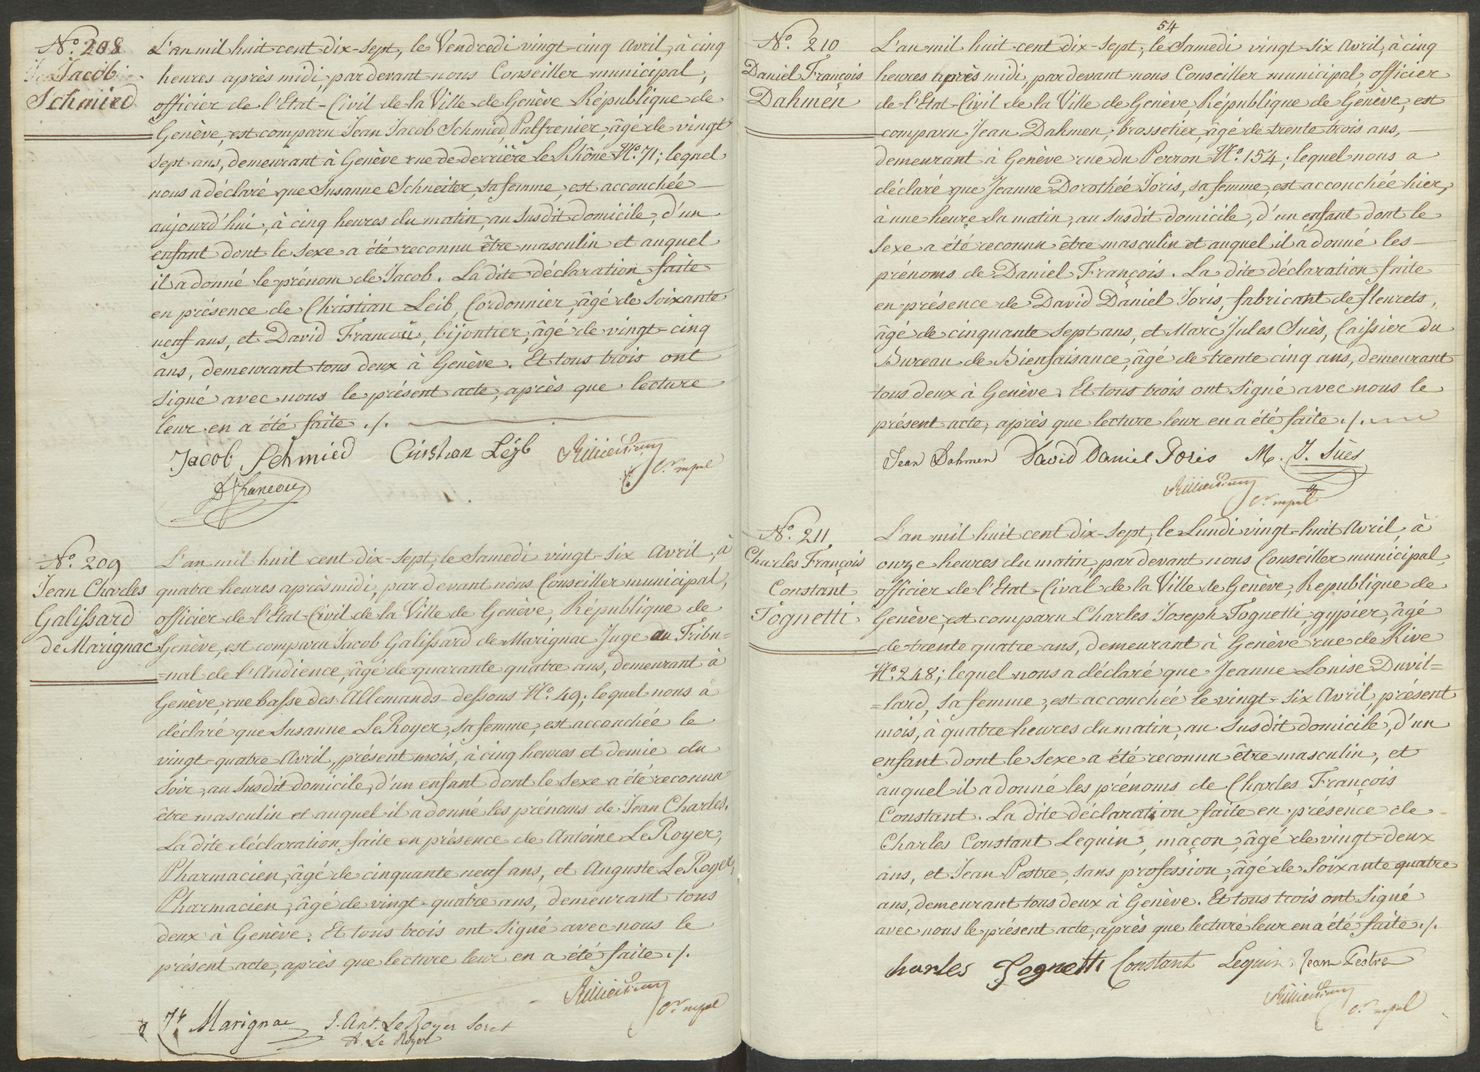 N.º 208
Jn Jacob
Schmied
L'an mil huit cent dix-sept, le Vendredi vingt-cinq Avril, à cinq
heures après midi, par devant nous Conseiller municipal,
officier de l'Etat-Civil de la Ville de Genève République de
Genève, est comparu Jean Jacob Schmied, Palfrenier, âgé de vingt
sept ans, demeurant à Genève rue de derrière le Rhône N.º 71; lequel
nous a déclaré que Susanne Schneiter, sa femme, est accouchée
aujourd'hui, à cinq heures du matin, au susdit domicile, d'un
enfant dont le sexe a été reconnu être masculin et auquel
il a donné le prénom de Jacob. La dite déclaration faite
en présence de Christian Leib, Cordonnier, âgé de soixante
neuf ans, et David Francou, bijoutier, âgé de vingt-cinq
ans, demeurant tous deux à Genève. Et tous trois ont
signé avec nous le présent acte, après que lecture
leur en a été faite ./.
Jacob Schmied Cristian Leyb
D Francou
N.º 209
Jean Charles
Galissard
de Marignac
L'an mil huit cent dix-sept, le Samedi vingt-six Avril, à
quatre heures après midi, par devant nous Conseiller municipal,
officier de l'Etat-Civil de la Ville de Genève, République de
Genève, est comparu Jacob Galissard de Marignac Juge au Tribu=
=nal de l'Audience, âgé de quarante quatre ans, demeurant à
Genève, rue basse des Allemands-dessous N.º 49; lequel nous a
déclaré que Susanne Le Royer, sa femme, est accouchée le
vingt-quatre Avril, présent mois, à cinq heures et demie du
soir, au susdit domicile, d'un enfant dont le sexe a été reconnu
être masculin et auquel il a donné les prénoms de Jean Charles.
La dite déclaration faite en présence de Antoine Le Royer,
Pharmacien, âgé de cinquante neuf ans, et Auguste Le Royer,
Pharmacien, âgé de vingt-quatre ans, demeurant tous
deux à Genève. Et tous trois ont signé avec nous le
présent acte, après que lecture leur en a été faite ./.
Marignac J. Ant. Le Royer
A. Le Royer
54
N.º 210
Daniel François
Dahmen
L'an mil huit cent dix-sept, le Samedi vingt-six Avril, à cinq
heures après midi, par devant nous Conseiller municipal officier
de l'Etat-Civil de la Ville de Genève République de Genève, est
comparu Jean Dahmen, brossetier, âgé de trente trois ans,
demeurant à Genève rue du Perron N.º 154; lequel nous a
déclaré que Jeanne Dorothée Joris, sa femme, est accouchée hier,
à une heure du matin, au susdit domicile, d'un enfant dont le
sexe a été reconnu être masculin et auquel il a donné les
prénoms de Daniel François. La dite déclaration faite
en présence de David Daniel Joris, fabricant de fleurets,
âgé de cinquante sept ans, et Marc Jules Suès, Caissier du
Bureau de Bienfaisance, âgé de trente cinq ans, demeurant
tous deux à Genève. Et tous trois ont signé avec nous le
présent acte, après que lecture leur en a été faite ./.
Jean Dahmen David Daniel Joris M. J. Suès
N.º 211
Charles François
Constant
Tognetti
L'an mil huit cent dix-sept, le Lundi vingt-huit Avril, à
onze heures du matin, par devant nous Conseiller municipal,
officier de l'Etat-Civil de la Ville de Genève, République de
Genève, est comparu Charles Joseph Tognetti, gypier, âgé
de trente quatre ans, demeurant à Genève rue de Rive
N.º 248; lequel nous a déclaré que Jeanne Louise Duvil=
=lard, sa femme, est accouchée le vingt-six Avril, présent
mois, à quatre heures du matin, au susdit domicile, d'un
enfant dont le sexe a été reconnu être masculin, et
auquel il a donné les prénoms de Charles François
Constant. La dite déclaration faite en présence de
Charles Constant Lequin, maçon, âgé de vingt-deux
ans, et Jean Pestre, sans profession, âgé de soixante quatre
ans, demeurant tous deux à Genève. Et tous trois ont signé
avec nous le présent acte, après que lecture leur en a été faite ./.
charles Tognetti Constant Lequin Jean Pestre